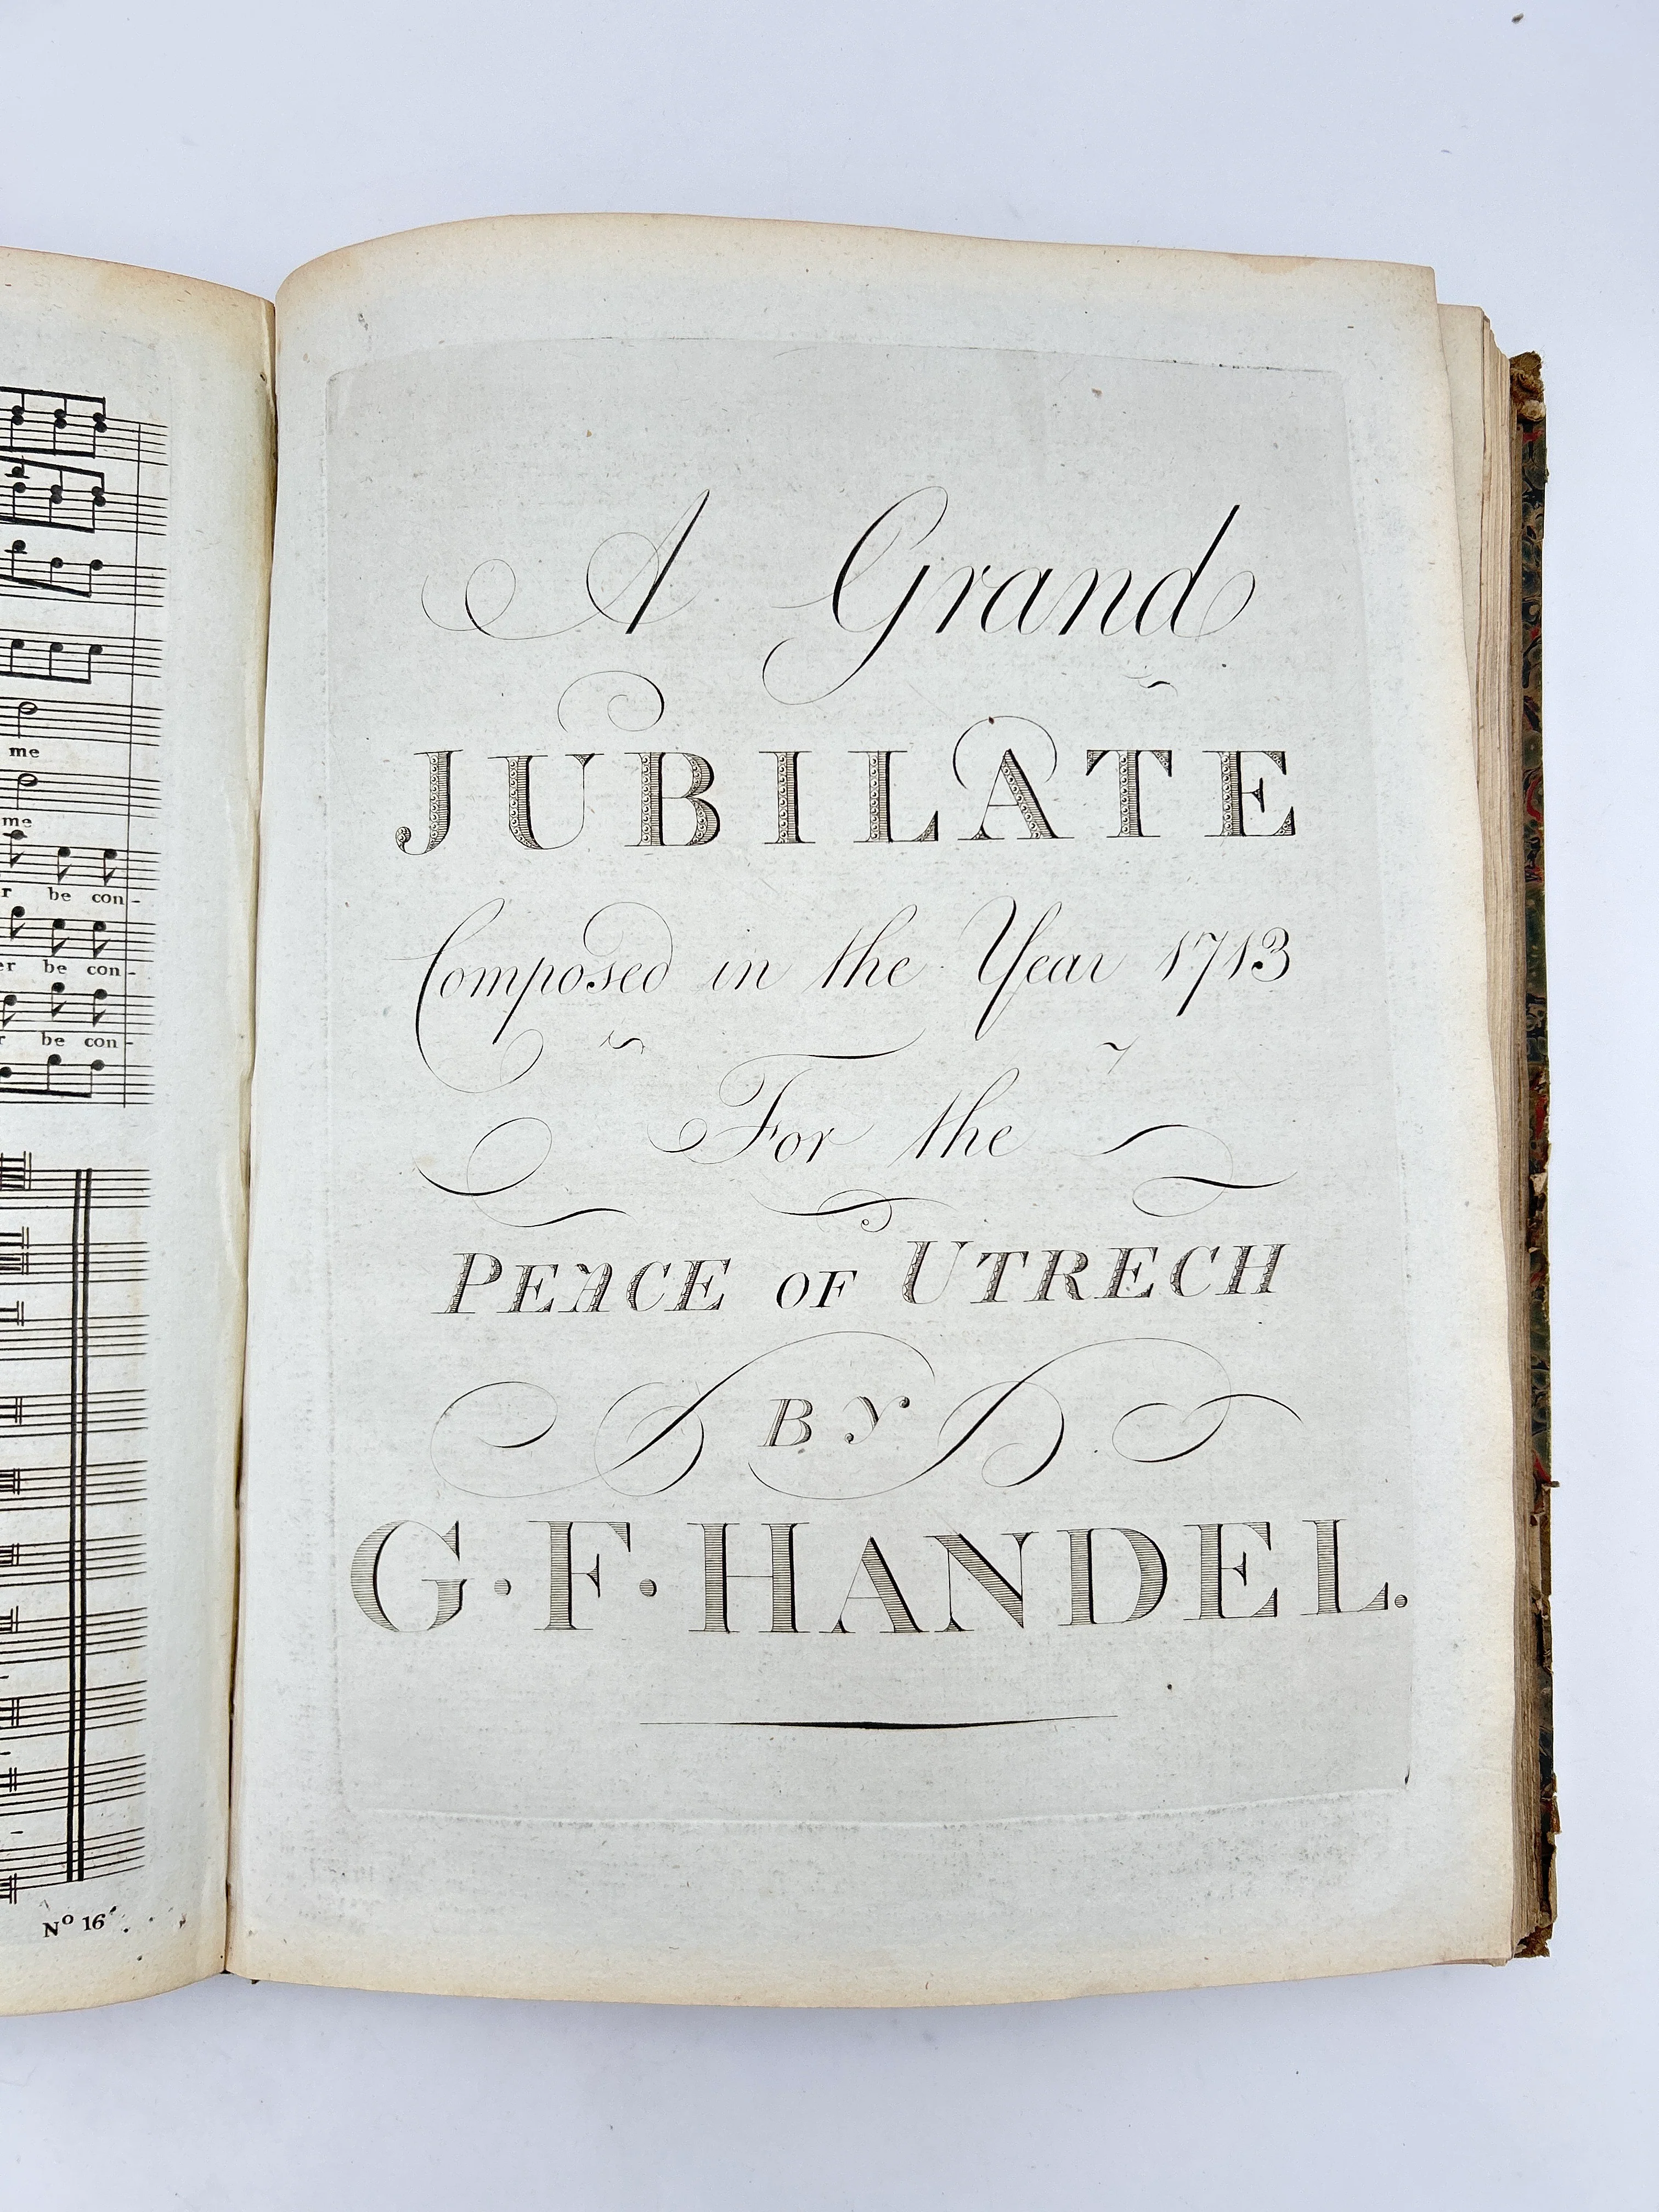 me
me
be con-
er be con-
be con-
Nº 16
A Grand
JUBILATE
Composed in the Year 1713
For the
PEACE OF UTRECH
BY
G·F·HANDEL.